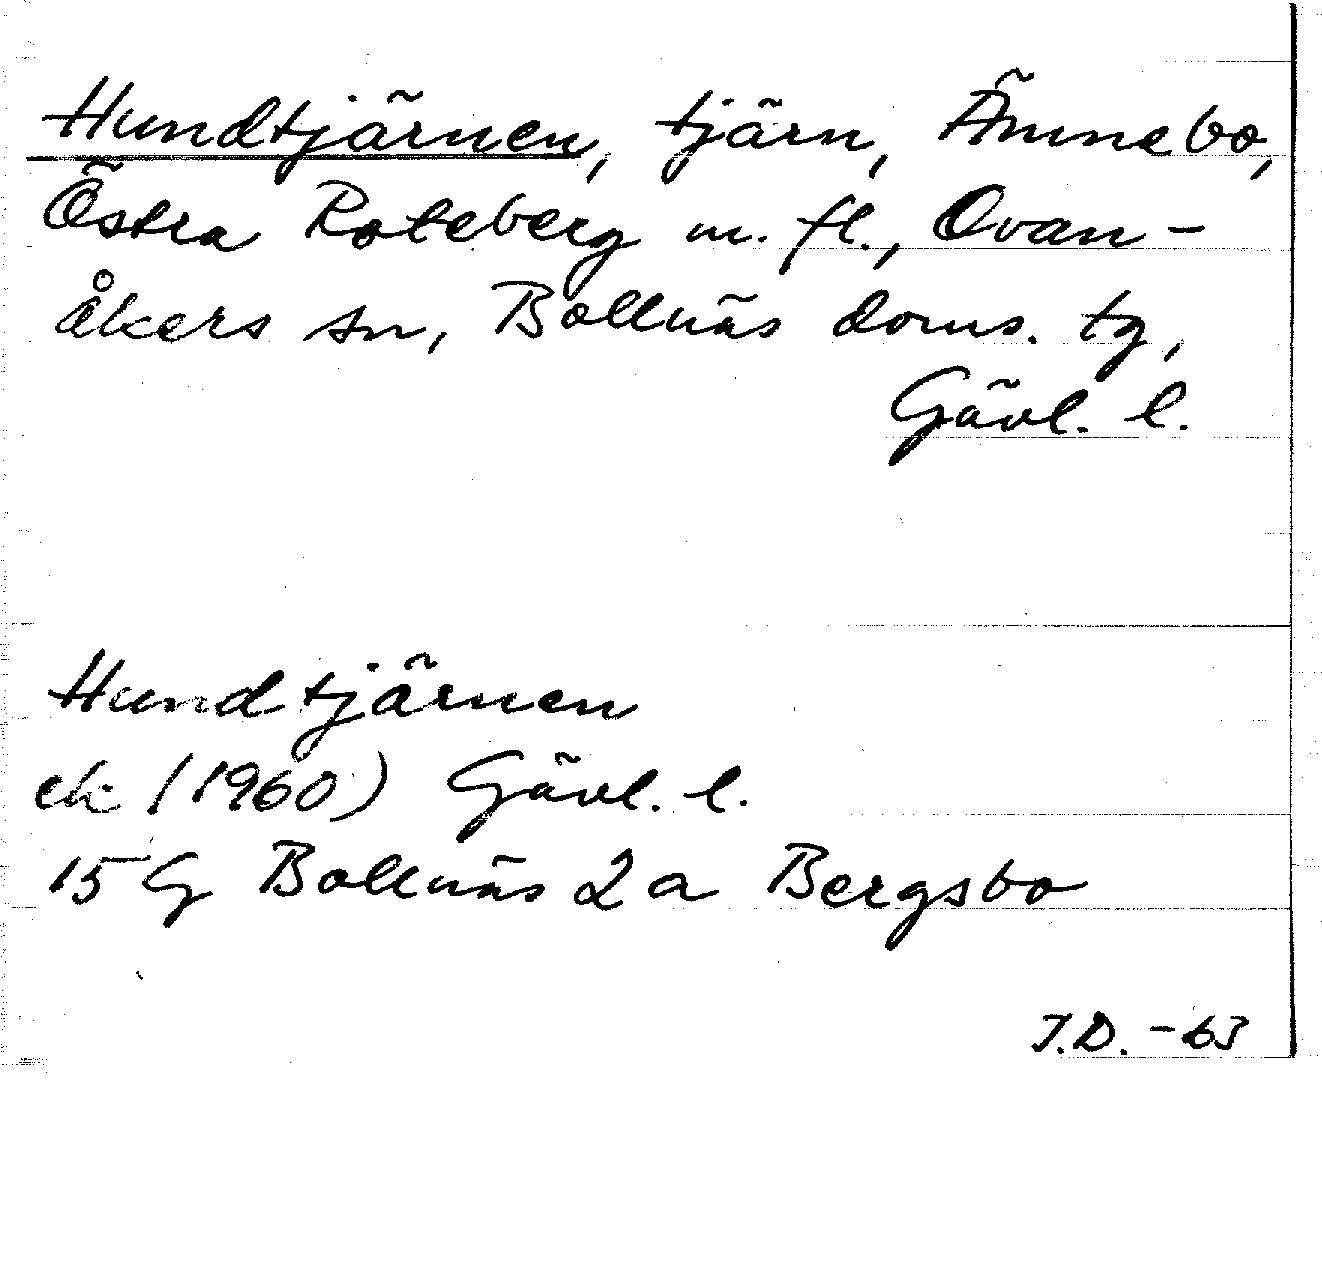 Hundtjärnen, tjärn, Ämnebo,
Östra Roteberg m. fl., Ovan-
åkers sn, Bollnäs doms. tg,
Gävl. l.
Hundtjärnen
ek (1960) Gävl. l.
15 G Bollnäs 2 a Bergsbo
I.D. -63